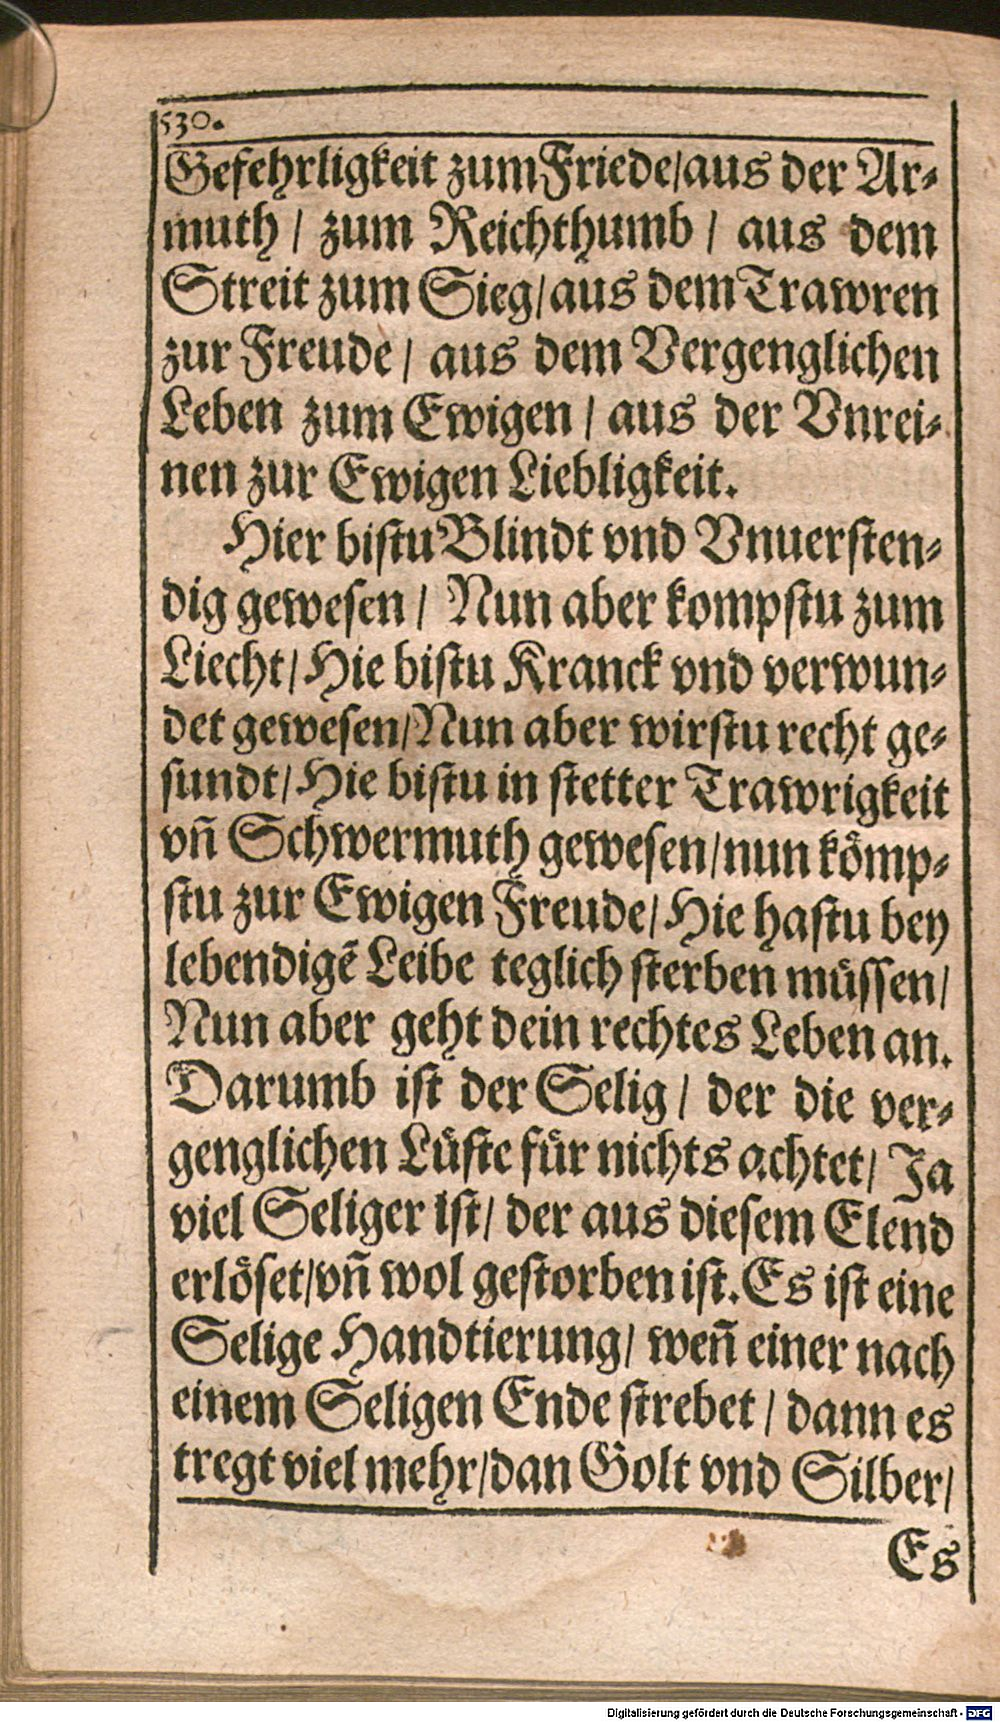 530.
Gefehrligkeit zum Friede/aus der Ar⸗
muth / zum Reichthumb / aus dem
Streit zum Sieg/aus dem Trawren
zur Freude / aus dem Vergenglichen
Leben zum Ewigen / aus der Vnrei⸗
nen zur Ewigen Liebligkeit.
Hier bistu Blindt vnd Vnuersten⸗
dig gewesen / Nun aber kompstu zum
Liecht/ Hie bistu Kranck vnd verwun⸗
det gewesen/Nun aber wirstu recht ge⸗
sundt/ Hie bistu in stetter Trawrigkeit
vñ Schwermuth gewesen/nun kömp⸗
stu zur Ewigen Freude/ Hie hastu bey
lebendigē Leibe teglich sterben müssen/
Nun aber geht dein rechtes Leben an.
Darumb ist der Selig / der die ver⸗
genglichen Lüste für nichts achtet/ Ja
viel Seliger ist/ der aus diesem Elend
erlöset/vñ wol gestorben ist. Es ist eine
Selige Handtierung/ weñ einer nach
einem Seligen Ende strebet / dann es
tregt viel mehr/dan Golt vnd Silber/
Es
Digitalisierung gefördert durch die Deutsche Forschungsgemeinschaft - DFG